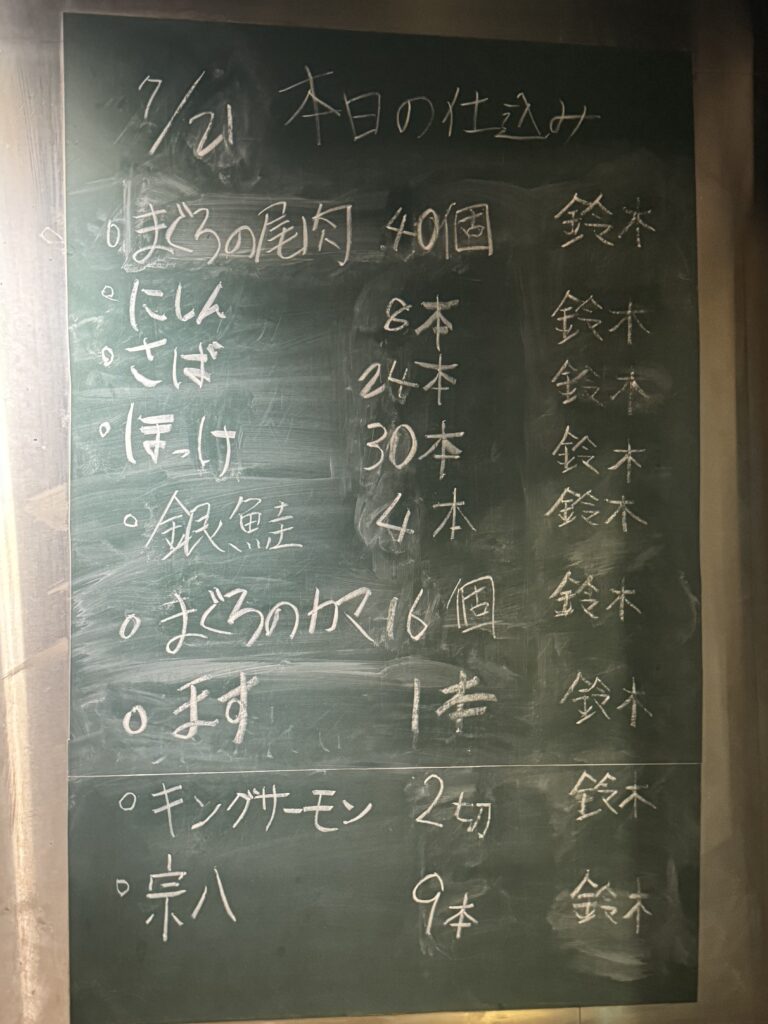 7/21 本日の仕込み
○まぐろの尾肉 40個 鈴木
○にしん 8本 鈴木
○さば 24本 鈴木
○ほっけ 30本 鈴木
○銀鮭 4本 鈴木
○まぐろのカマ 16個 鈴木
○ます 1本 鈴木
○キングサーモン 2切 鈴木
○宗八 9本 鈴木